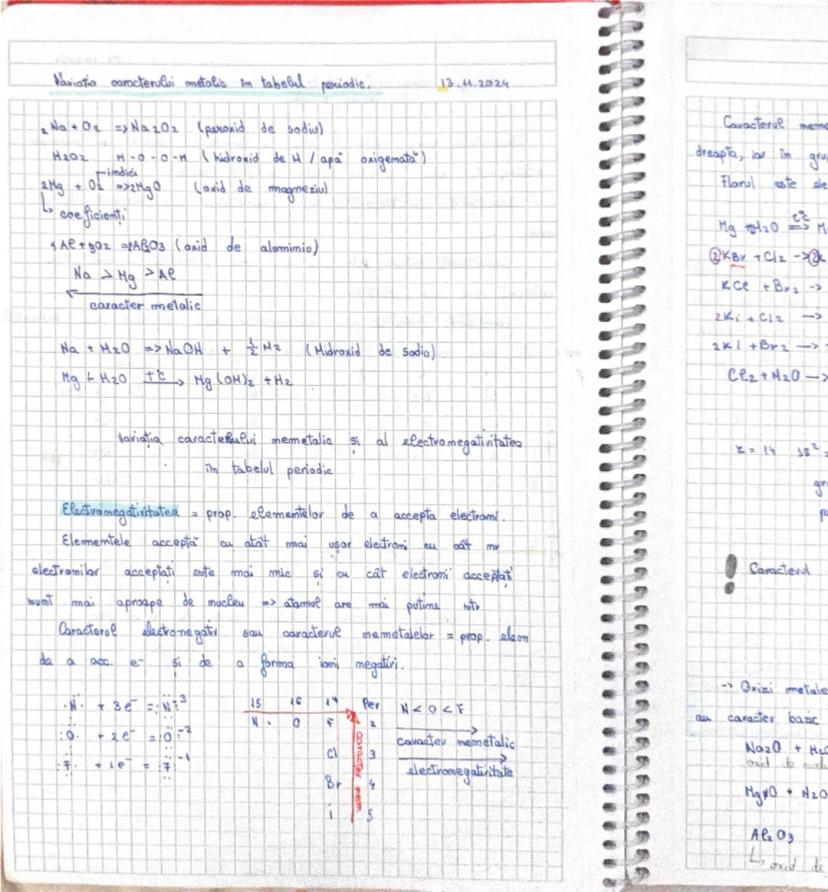 Variația caracterului metalic în tabelul periodic. 13.11.2024
2Na + O2 => Na2O2 (peroxid de sodiu)
H2O2 H-O-O-H (hidroxid de H / apă oxigenată)
indici
2Mg + O2 => 2MgO (oxid de magneziu)
↳ coeficienți
4Al + 3O2 => 2Al2O3 (oxid de aluminiu)
Na > Mg > Al
caracter metalic
Na + H2O => NaOH + 1/2 H2 (Hidroxid de Sodiu)
Mg + H2O t°C → Mg(OH)2 + H2
Variația caracterului nemetalic și al electronegativitatea
în tabelul periodic
Electronegativitatea = prop. elementelor de a accepta electroni.
Elementele acceptă cu atât mai ușor electroni cu cât nr
electronilor acceptați este mai mic și cu cât electroni acceptați
sunt mai aproape de nucleu => atomul are mai puține
Caracterul electronegativ sau caracterul nemetalelor = prop. elem
de a acc. e- și de a forma ioni negativi.
N + 3e- = N-3 15 16 17 Per N < O < F
O + 2e- = O-2 N O F 2 caracter nemetalic
F + 1e- = F-1 Cl 3 electronegativitate
Br 4
I 5
caracter nem
Caracterul neme
dreapta, iar în gru
Florul este ele
Mg + H2O t°C => M
2KBr + Cl2 -> 2k
KCl + Br2 ->
2Ki + Cl2 ->
2KI + Br2 ->
Cl2 + H2O ->
Z = 14 1s2
gr
p
! Caracterul
-> Oxizi metale
au caracter bazic
Na2O + H2O
MgO + H2O
Al2O3
↳ oxid de